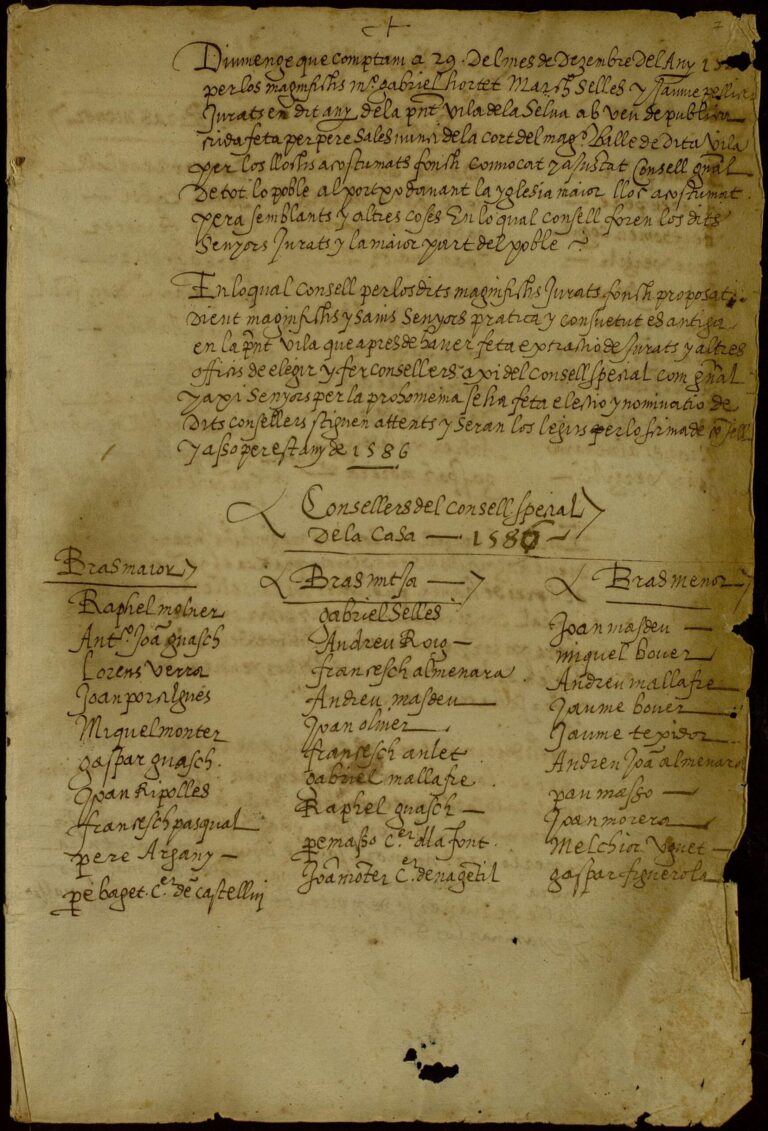 +
2
Diumenge que comptam a 29 Del mes de Dezembre Del Any 15
per los magnifichs mº gabriel hortet March Selles y Jaume
Jurats en dit any de la pñt vila de la Selva ab veu de publica
crida feta per pere Sales nunci de la cort del magº Balle de Dita vila
per los llochs acostumats fonch convocat y ajustat Consell gñal
De tot lo poble al portxo davant la yglesia maior lloc acostumat
pera semblants y altres coses En lo qual consell foren los dits
Senyors Jurats y la maior part del poble
En lo qual Consell per los dits magnifichs Jurats fonch proposat
Dient magnifichs y savis Senyors pratica y consuetut es antiga
en la pñt vila que apres de haver feta extractio de Jurats y altres
officis de elegir y fer consellers axi del consell special com gñal
y axi Senyors per la prohomenia se ha feta electio y nominatio de
Dits consellers stiguen attents y seran los legits per lo firma de
y asso per est any de 1586
Consellers del consell special
De la Casa — 1586 —
Bras maior
Raphel molner
Antº Joã guasch
Lorens verra
Joan poralgues
Miquel monter
gaspar guasch
Joan Ripolles
fransesch pasqual
pere Argany —
pe baget Cer de castellvi
Bras mitsa —
gabriel Selles
Andreu Roig —
fransesch almenara
Andreu masdeu
Joan oliver
fransesch anlet
gabriel mallafre
Raphel guasch —
pe masso Cer dla font
Joã mõter Cer de na gentil
Bras menor
Joan masdeu —
miquel bover
Andreu mallafre
Jaume bover
Jaume texidor
Andreu Joã almenara
pau masso —
Joan morera
Melchior Uguet —
gaspar figuerola